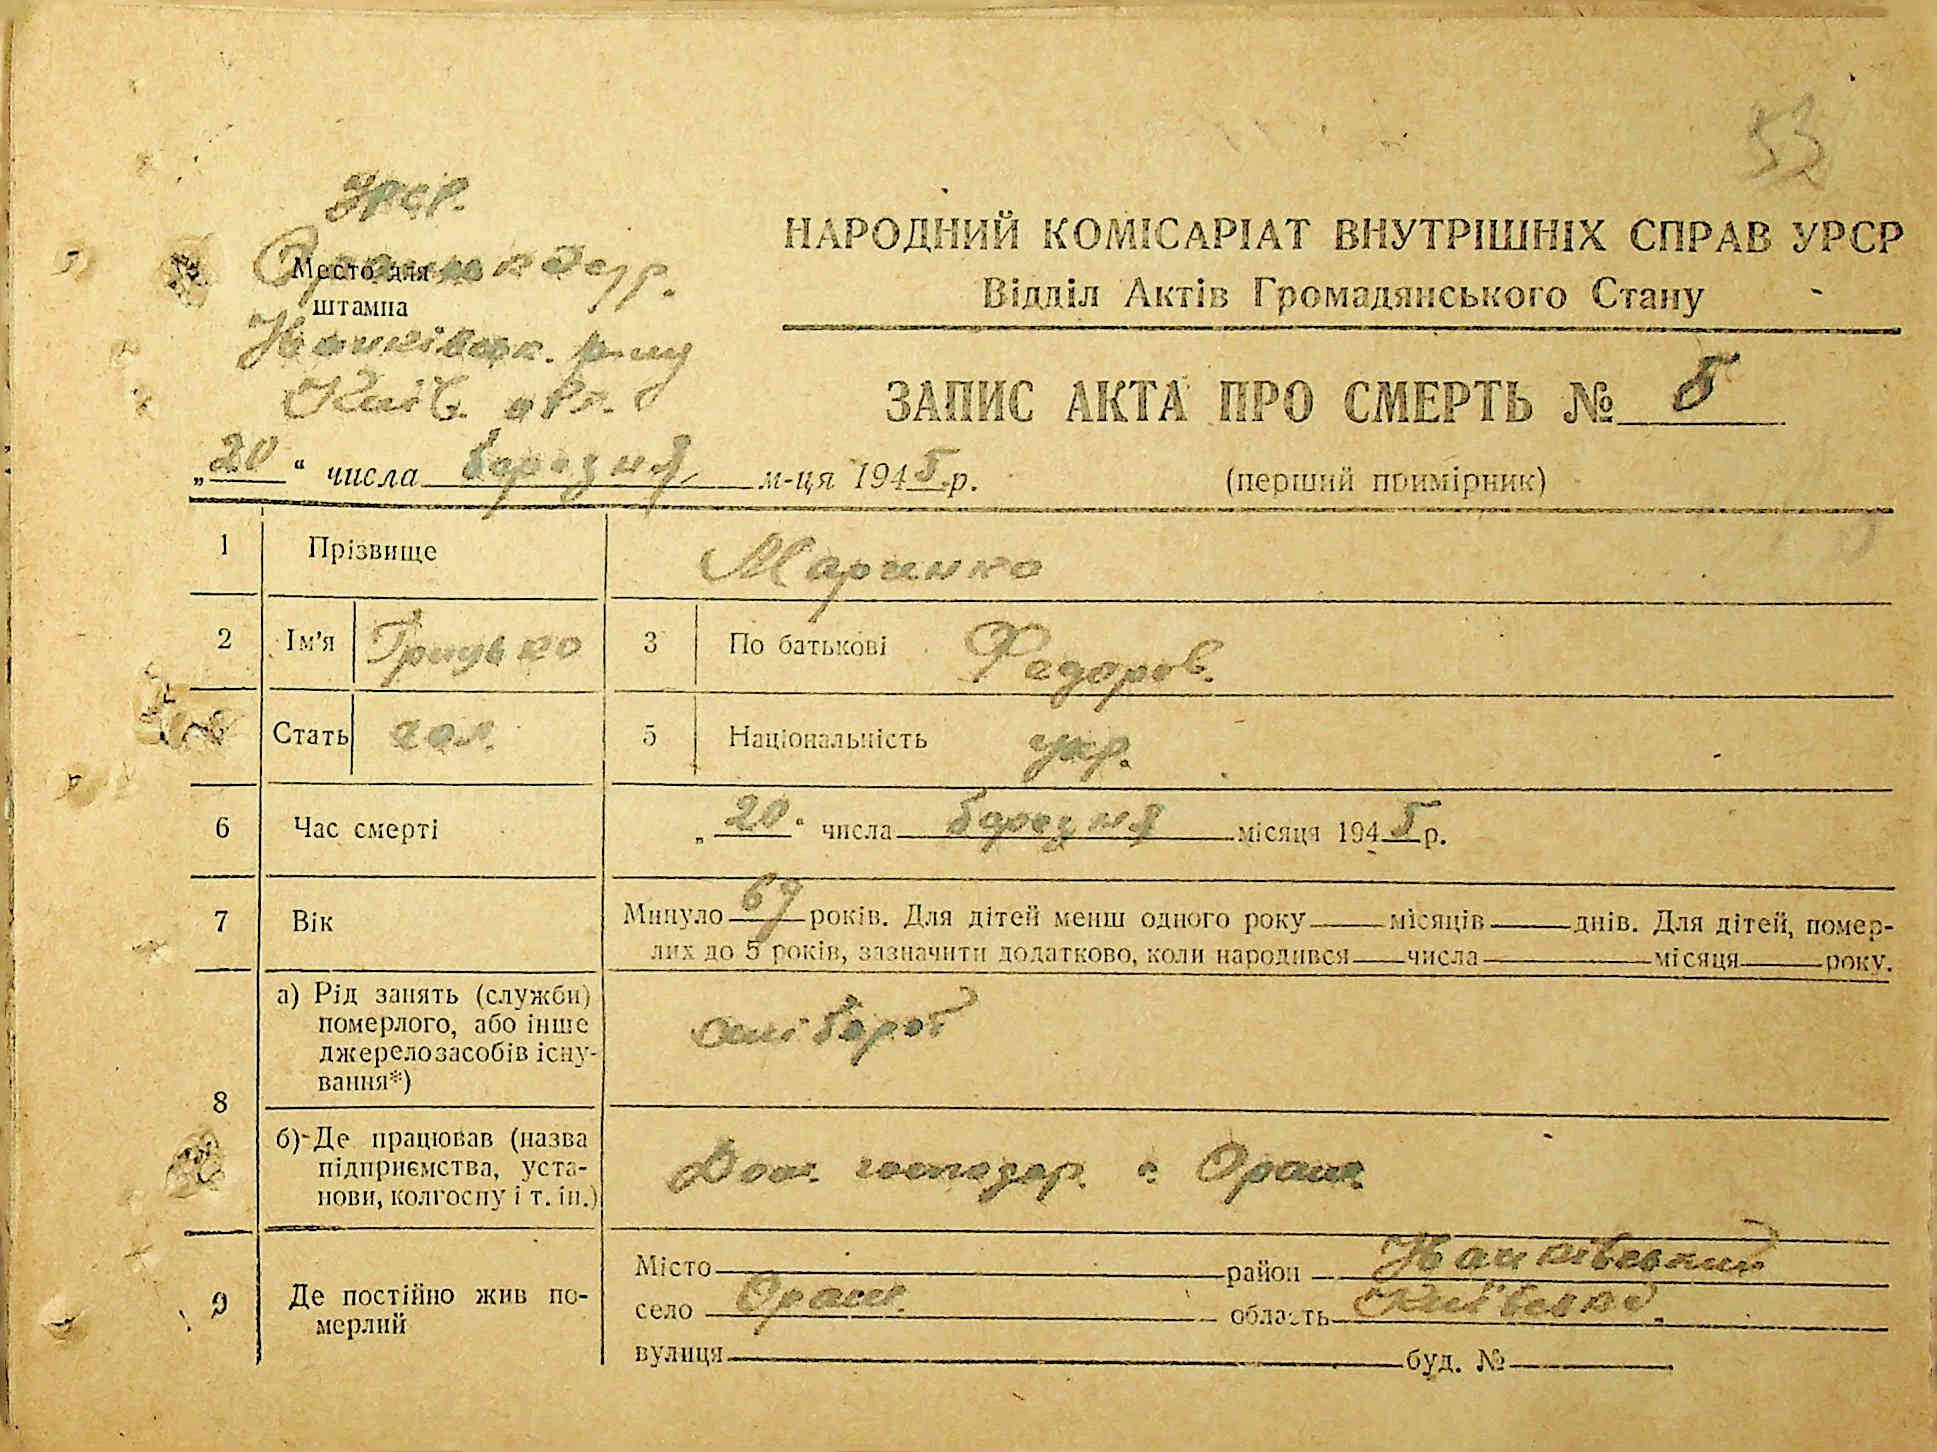 53
УРСР.
Место для
штампа
Київ. обл.
НАРОДНИЙ КОМІСАРІАТ ВНУТРІШНІХ СПРАВ УРСР
Відділ Актів Громадянського Стану
ЗАПИС АКТА ПРО СМЕРТЬ № 5
„20“ числа березня м-ця 1945 р.
(перший примірник)
1 Прізвище Маринко
2 Ім'я Грицько 3 По батькові Федоров.
Стать чол. 5 Національність укр.
6 Час смерті „20“ числа березня місяця 1945 р.
7 Вік Минуло 69 років. Для дітей менш одного року місяців днів. Для дітей, помер-
лих до 5 років, зазначити додатково, коли народився числа місяця року.
8 а) Рід занять (служби)
померлого, або інше
джерело засобів існу-
вання*)
б) Де працював (назва
підприємства, уста-
нови, колгоспу і т. ін.)
Дом. господар. с. Оран.
9 Де постійно жив по-
мерлий
Місто район
село Оран. область Київська.
вулиця буд. №